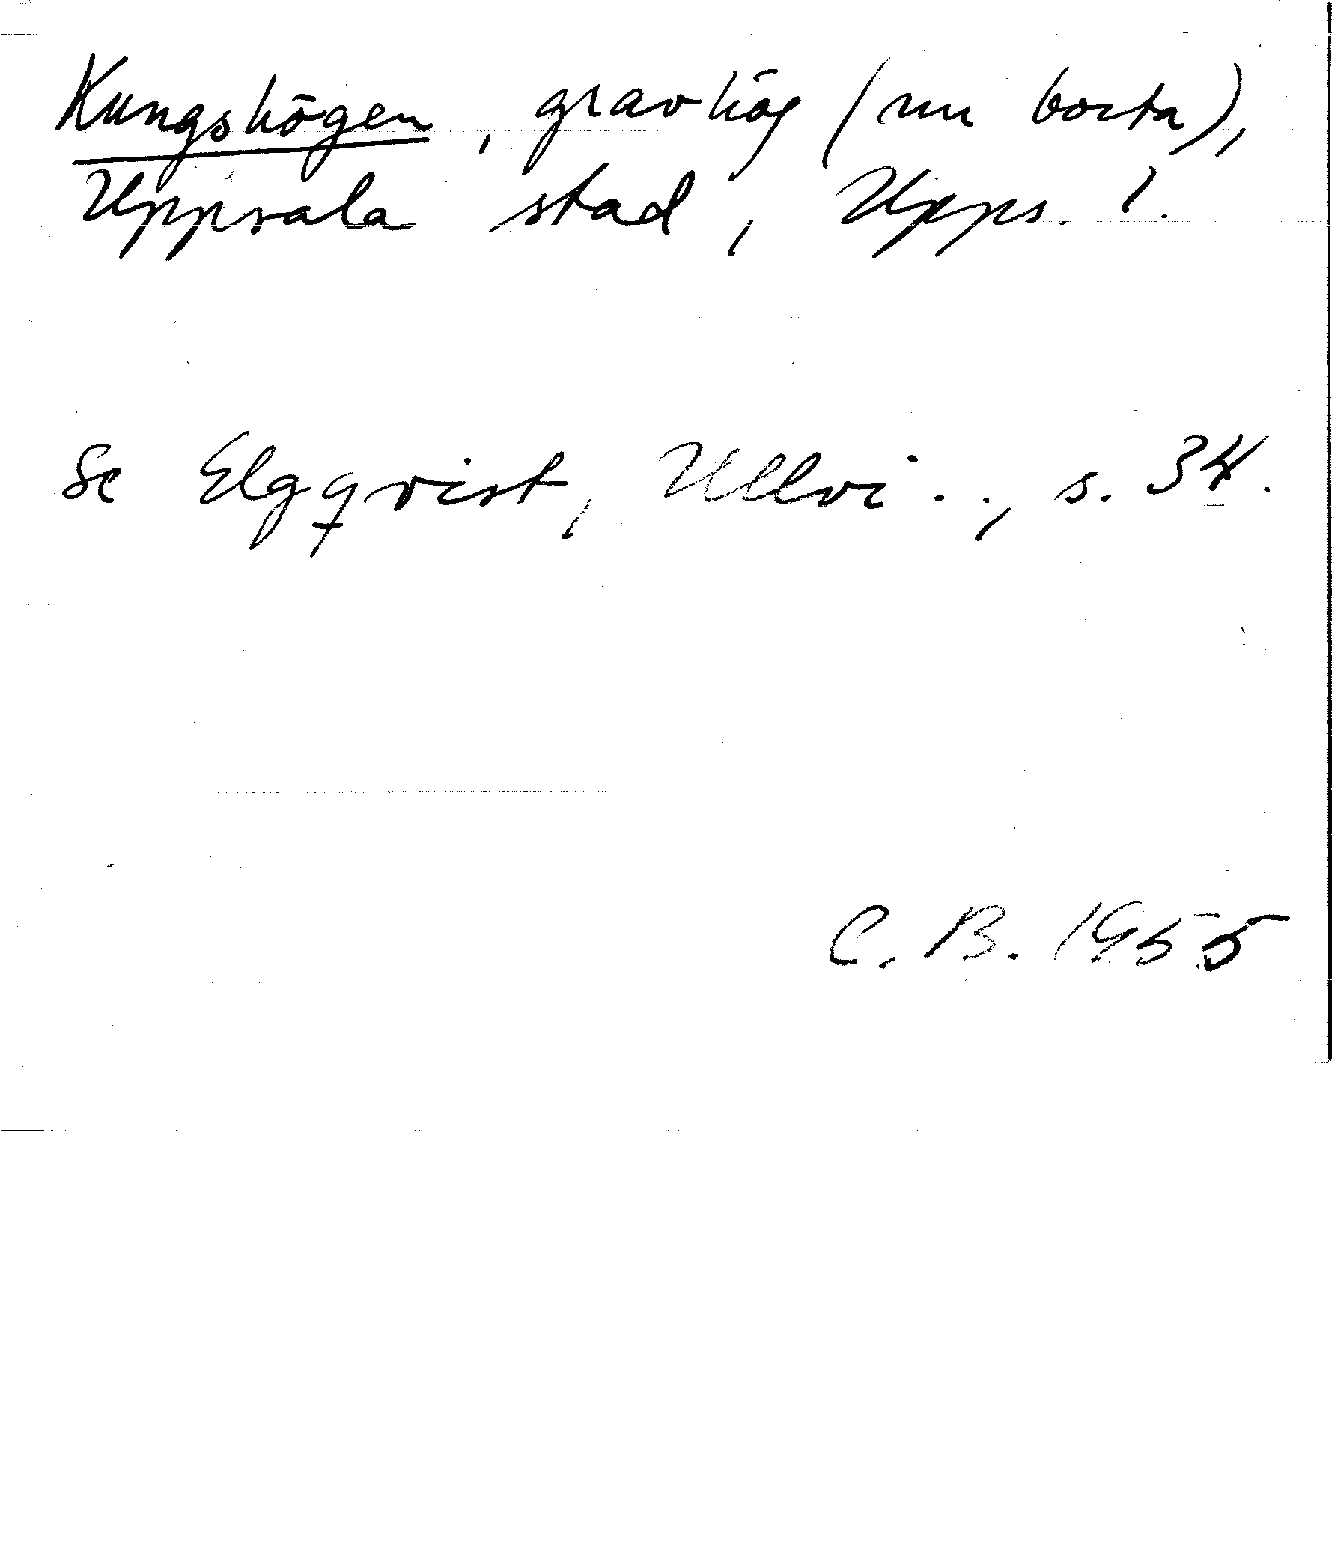 Kungshögen, gravhög (nu borta),
Uppsala stad, Upps. l.
Se Elgqvist, Ullvi . ., s. 34.
C. B. 1955